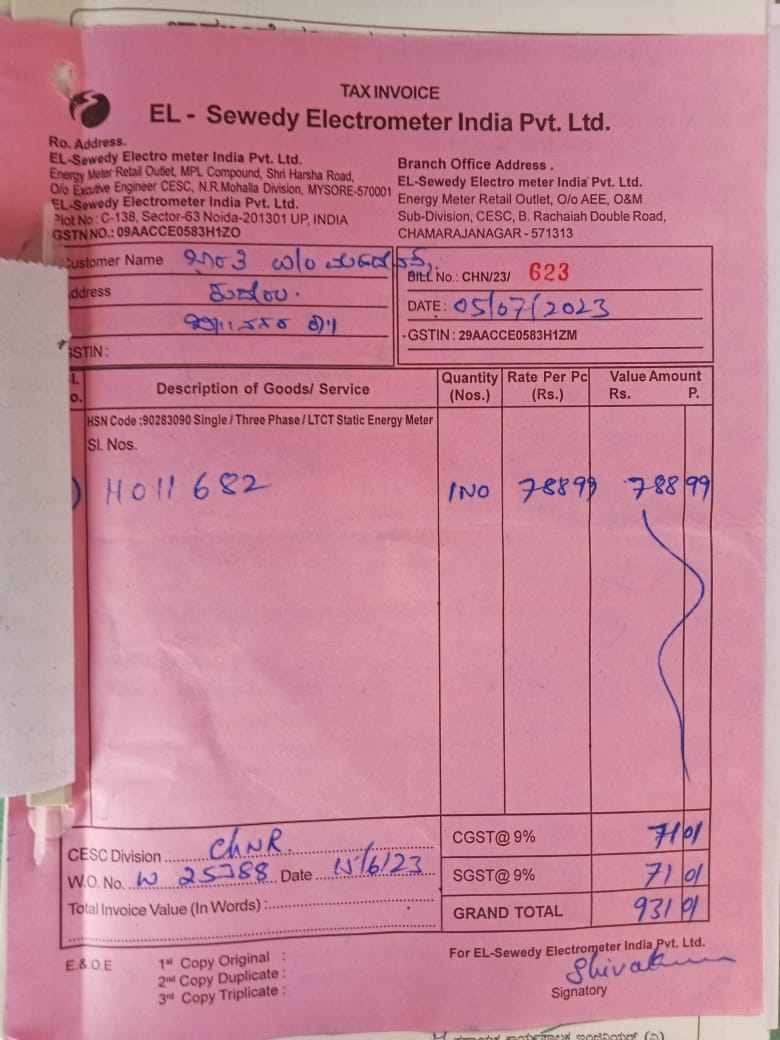 TAX INVOICE
EL - Sewedy Electrometer India Pvt. Ltd.
Ro. Address.
EL-Sewedy Electro meter India Pvt. Ltd.
Energy Meter Retail Outlet, MPL Compound, Shri Harsha Road,
O/o Excutive Engineer CESC, N.R.Mohalla Division, MYSORE-570001
EL-Sewedy Electrometer India Pvt. Ltd.
Plot No : C-138, Sector-63 Noida-201301 UP, INDIA
GSTN NO.: 09AACCE0583H1ZO
Branch Office Address .
EL-Sewedy Electro meter India Pvt. Ltd.
Energy Meter Retail Outlet, O/o AEE, O&M
Sub-Division, CESC, B. Rachaiah Double Road,
CHAMARAJANAGAR - 571313
Customer Name
ddress
GSTIN :
BILL No.: CHN/23/ 623
DATE : 05/07/2023
GSTIN : 29AACCE0583H1ZM
l. o. Description of Goods/ Service Quantity (Nos.) Rate Per Pc (Rs.) Value Amount Rs. P.
HSN Code :90283090 Single / Three Phase / LTCT Static Energy Meter
Sl. Nos.
) H011682 1NO 78899 788 99
CESC Division ChNR.
W.O. No. W 25788 Date 15/6/23
Total Invoice Value (In Words) :
CGST@ 9% 71 01
SGST@ 9% 71 01
GRAND TOTAL 931 01
E.& O.E
1st Copy Original :
2nd Copy Duplicate :
3rd Copy Triplicate :
For EL-Sewedy Electrometer India Pvt. Ltd.
Signatory